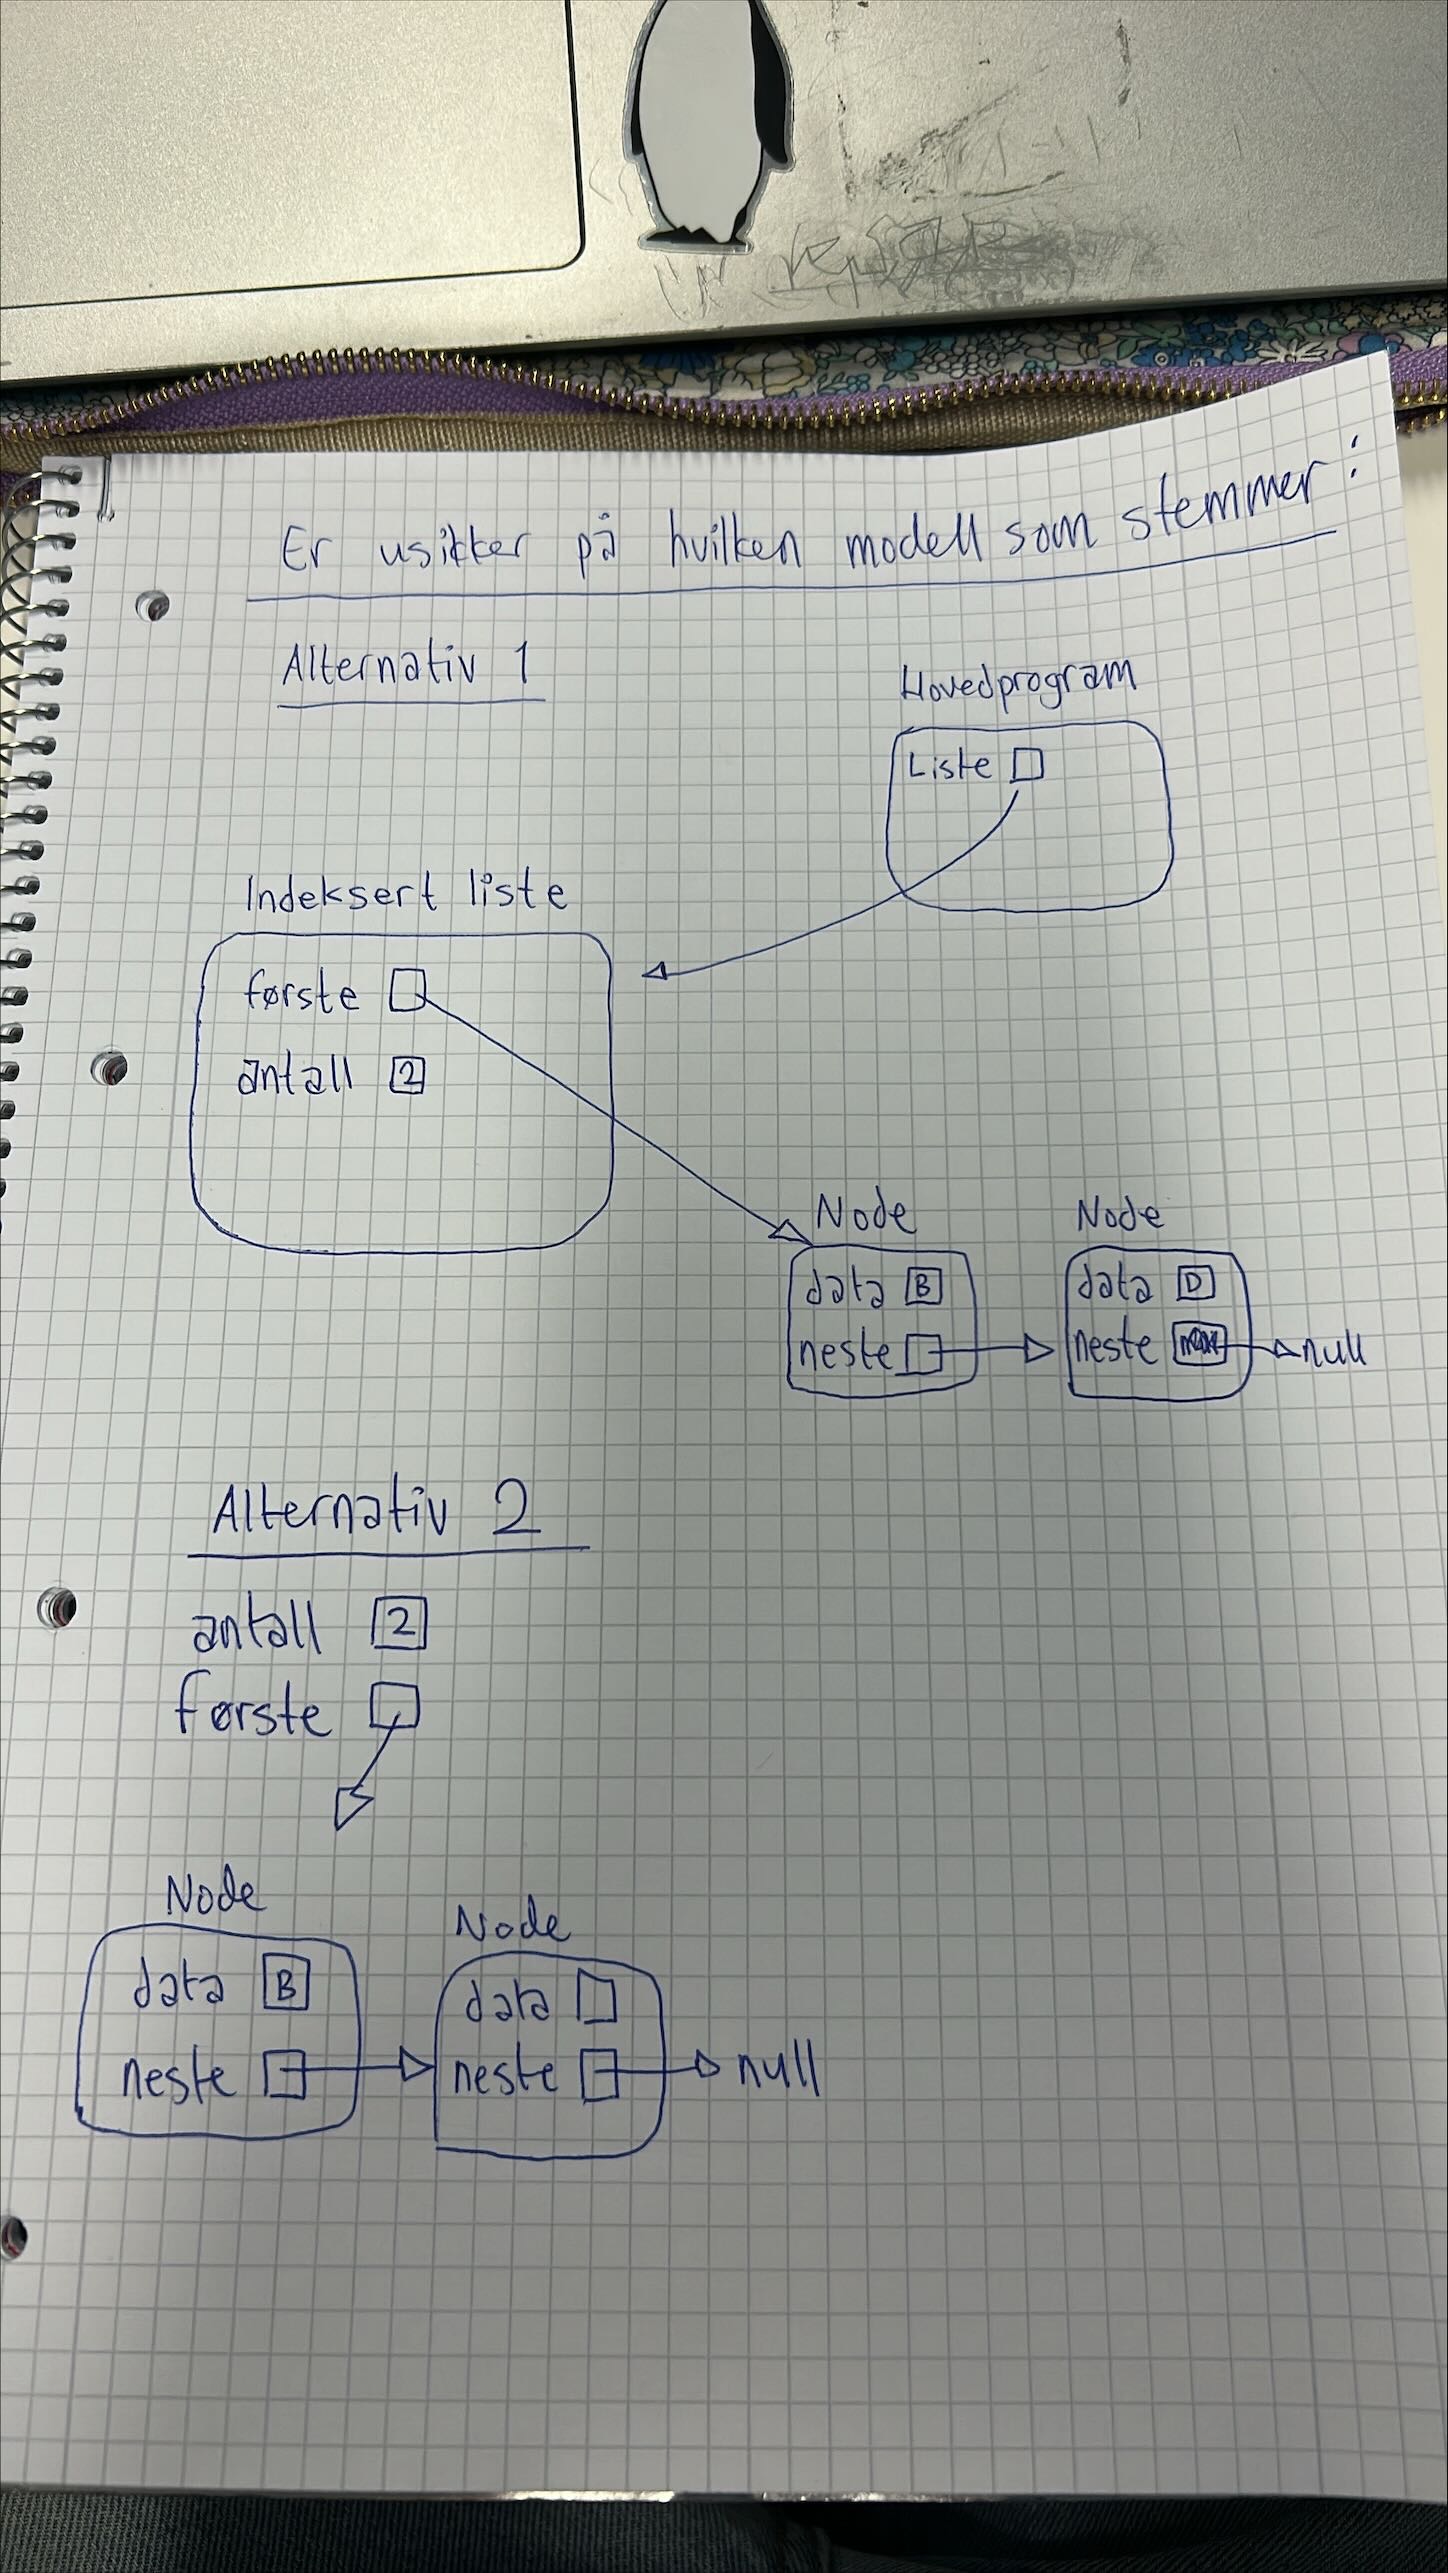 Er usikker på hvilken modell som stemmer:
Alternativ 1
Hovedprogram
Liste
Indeksert liste
første
antall 2
Node
data B
neste
Node
data D
neste
null
Alternativ 2
antall 2
første
Node
data B
neste
Node
data
neste
null